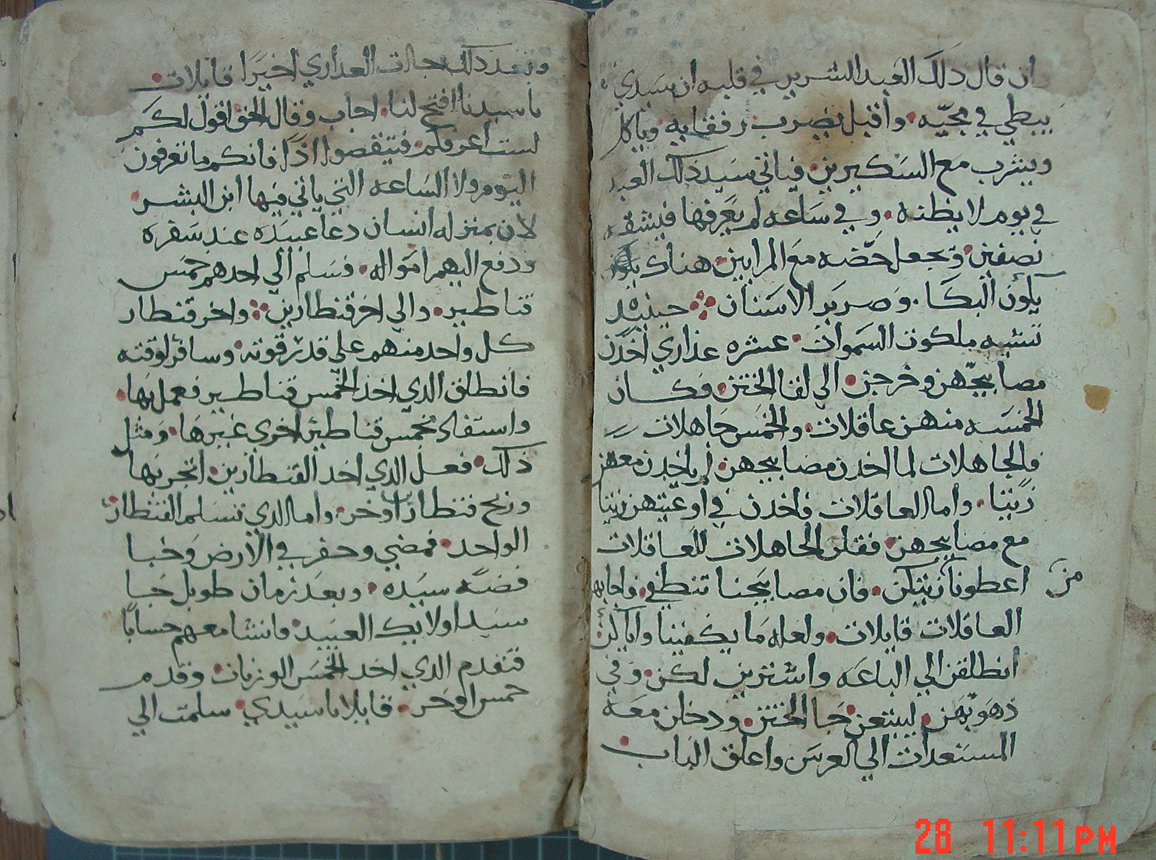 ان قال ذلك العبد الشرير في قلبه ان سيدي
يبطي في مجيّه. واقبل يضرب رفقايه وياكل
ويشرب مع السكيرين. فياتي سيد ذلك العبد
في يوم لا يظنه. وفي ساعه لم يعرفها فيشقه
نصفين. ويجعل حضه مع المرايين. هناك يكون
يكون البكا. وصرير الاسنان. حينيد
تشبه ملكوت السموات. عشره عذاري اخدن
مصابيحهن وخرجن. الي لقا الختن. وكان
الخمسه منهن عاقلات. والخمس جاهلات
والجاهلات لما اخدن مصابيحهن. لم ياخدن معهن
زيتا. واما العاقلات فاخدن في اوعيتهن زيتا
مع مصابيحهن. فقلن الجاهلات للعاقلات
اعطونا زيتكن. فان مصابيحنا تنطفي. فاجابهن
من
العاقلات قايلات. ولعله ما يكفينا واياكن
انطلقن الي الباعه واشترين لكن. وفي
دهوبهن. ليبتعن. جا الختن. ودخلن معه
المستعدات الي العرس واغلق الباب.
وبعد ذلك جات العداري اخيرا قايلات.
يا سيدنا افتح لنا. اجاب وقال الحق اقول لكم
لست اعرفكم. فتيقضوا اذا فانكم ما تعرفون
اليوم ولا الساعه التي ياتي فيها ابن البشر.
لان بمنزله انسان دعا عبيده عند سفره
ودفع اليهم امواله. فسلم الي احدهم خمس
قناطير. والي اخر قنطارين. واخر قنطار
كل واحد منهم علي قدر قوته. وسافر لوقته
فانطلق الدي اخد الخمس قناطير فعمل بها.
واستفاد خمس قناطير اخري غيرها. ومثل
ذلك. فعل الدي اخد القنطارين. اتجر بها
وربح قنطارين اوخر. واما الدي تسلم القنطار.
الواحد. فمضي وحفر في الارض وخبا
فضه سيده. وبعد زمان طويل جا
سيد اولايك العبيد. فانشا معهم حسابا
فتقدم الدي اخد الخمس الوزنات. وقدم
خمس اوخر. قايلا يا سيدي. سلمت الي